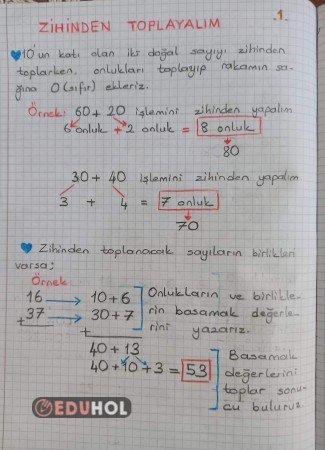 .1.
ZİHİNDEN TOPLAYALIM
10'un katı olan iki doğal sayıyı zihinden
toplarken, onlukları toplayıp rakamın sa-
ğına 0 (sıfır) ekleriz.
Örnek: 60 + 20 işlemini zihinden yapalım
6 onluk + 2 onluk = 8 onluk
80
30 + 40 işlemini zihinden yapalım
3 + 4 = 7 onluk
70
Zihinden toplanacak sayıların birlikleri
varsa;
Örnek
16 → 10 + 6 Onlukların ve birlikle-
37 → 30 + 7 rin basamak değerle-
+ + rini yazarız.
40 + 13
40 + 10 + 3 = 53 Basamak
değerlerini
toplar sonu-
cu buluruz
EDUHOL